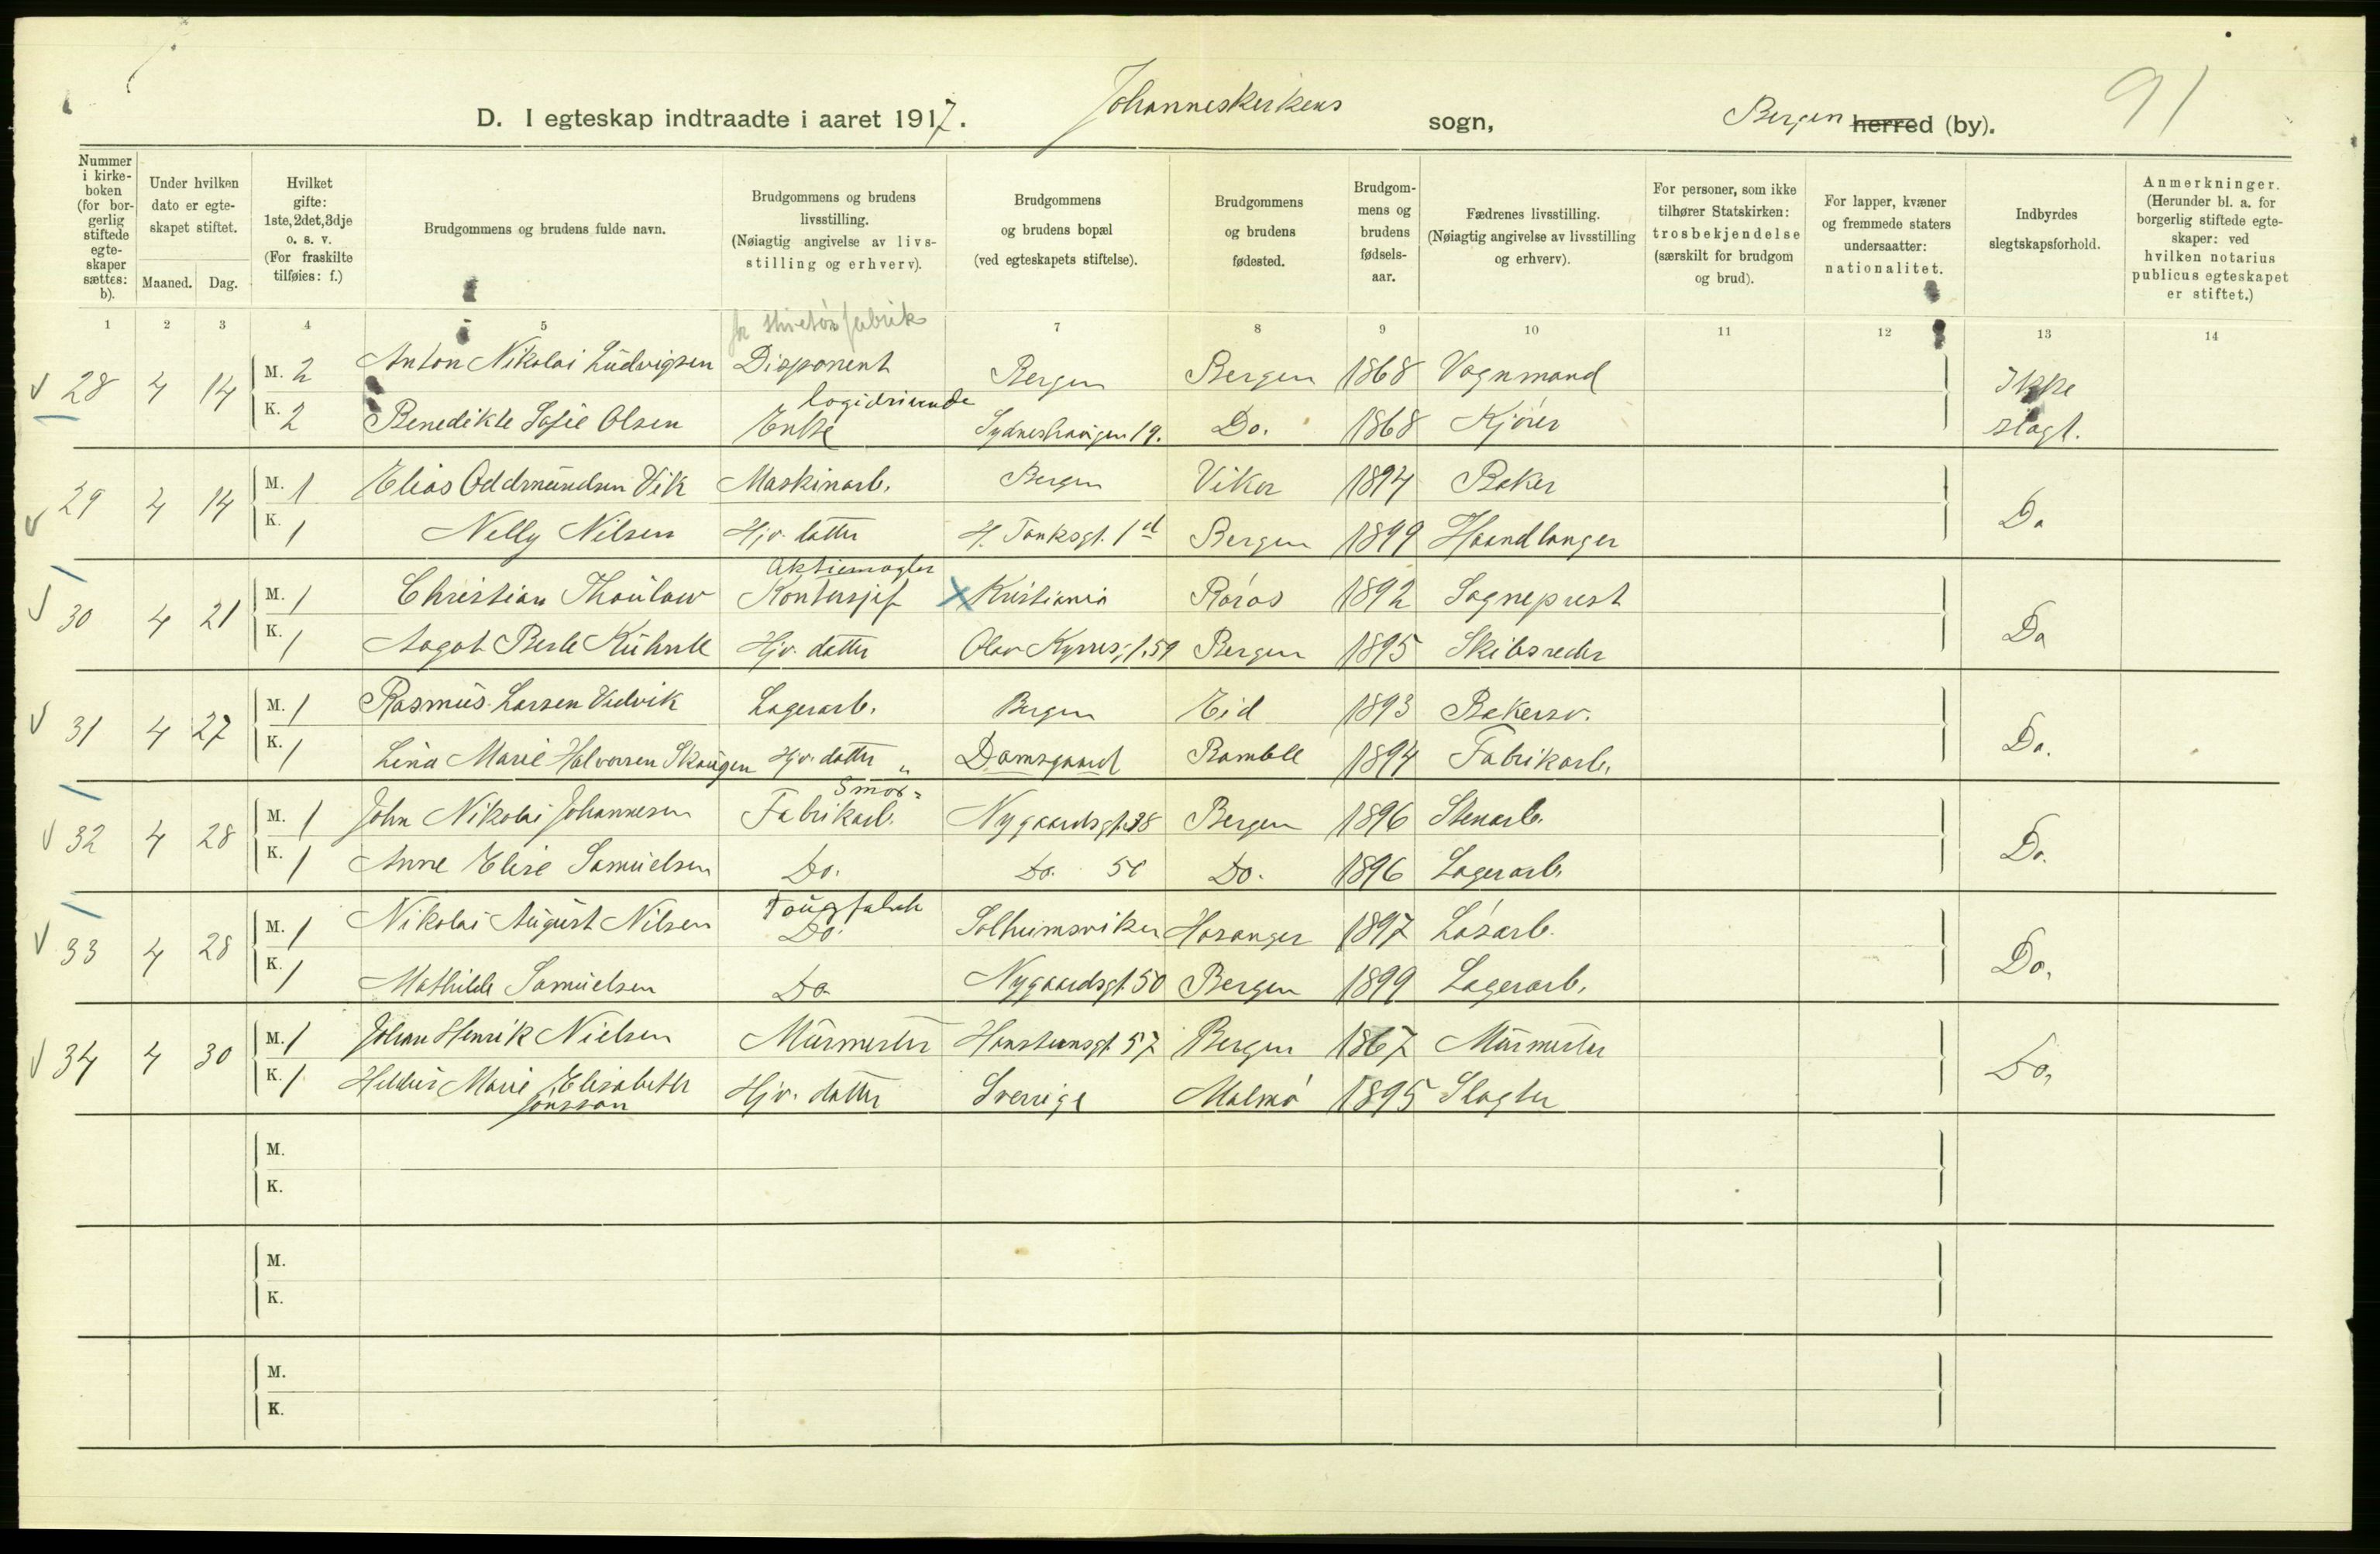 91
D. I egteskap indtraadte i aaret 1917. Johanneskirkens sogn, Bergen herred (by).
Nummer i kirke-boken (for bor-gerlig stiftede egte-skaper sættes: b).
Under hvilken dato er egte-skapet stiftet.
Maaned. Dag.
Hvilket gifte: 1ste, 2det, 3dje o. s. v. (For fraskilte tilføies: f.)
Brudgommens og brudens fulde navn.
Brudgommens og brudens livsstilling. (Nøiagtig angivelse av livs-stilling og erhverv).
Brudgommens og brudens bopæl (ved egteskapets stiftelse).
Brudgommens og brudens fødested.
Brudgom-mens og brudens fødsels-aar.
Fædrenes livsstilling. (Nøiagtig angivelse av livsstilling og erhverv).
For personer, som ikke tilhører Statskirken: trosbekjendelse (særskilt for brudgom og brud).
For lapper, kvæner og fremmede staters undersaatter: nationalitet.
Indbyrdes slegtskapsforhold.
Anmerkninger. (Herunder bl. a. for borgerlig stiftede egte-skaper: ved hvilken notarius publicus egteskapet er stiftet.)
1 2 3 4 5 7 8 9 10 11 12 13 14
fabrik
28 4 14 M. 2 Anton Nikolai Ludvigsen Disponent Bergen Bergen 1868 Vognmand Ikke
logidrivende
K. 2 Benedikte Sofie Olsen Enke Sydneshaugen 19. Do. 1868 Kjører slagt.
29 4 14 M. 1 Elias Oddmundsen Vik Maskinarb. Bergen Vikør 1894 Baker Do
K. 1 Nelly Nilsen Hjv. datter H. Tanksgt. 1 d Bergen 1899 Haandlanger
Aktiemægler
30 4 21 M. 1 Christian Thaulow Kontorsjef Kristiania Røros 1892 Sogneprest Do
K. 1 Aagot Berle Kühnle Hjv. datter Olav Kyrresgt. 59 Bergen 1895 Skibsreder
31 4 27 M. 1 Rasmus Larsen Lagerarb. Bergen Eid 1893 Bakersv. Do.
K. 1 Lina Marie Halvorsen Skaugen Hjv. datter " Damsgaard Bamble 1894 Fabrikarb.
Smør-
32 4 28 M. 1 John Nikolai Johannesen Fabrikarb. Nygaardsgt. 38 Bergen 1896 Stenarb. Do.
K. 1 Anne Elise Samuelsen Do. Do. 50 Do. 1896 Lagerarb.
Taugfabrik
33 4 28 M. 1 Nikolai August Nilsen Do. Solheimsviken Hosanger 1897 Løsarb. Do.
K. 1 Mathilde Samuelsen Do Nygaardsgt. 50 Bergen 1899 Lagerarb.
34 4 30 M. 1 Johan Henrik Nielsen Murmester Hansteensgt. 57 Bergen 1867 Murmester Do.
K. 1 Marie Elisabeth Hjv. datter Sverige Malmø 1895 Slagter
Jönsson
M.
K.
M.
K.
M.
K.